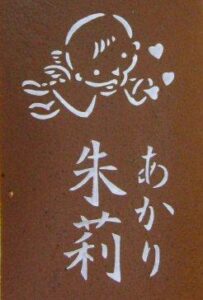 あかり
朱莉